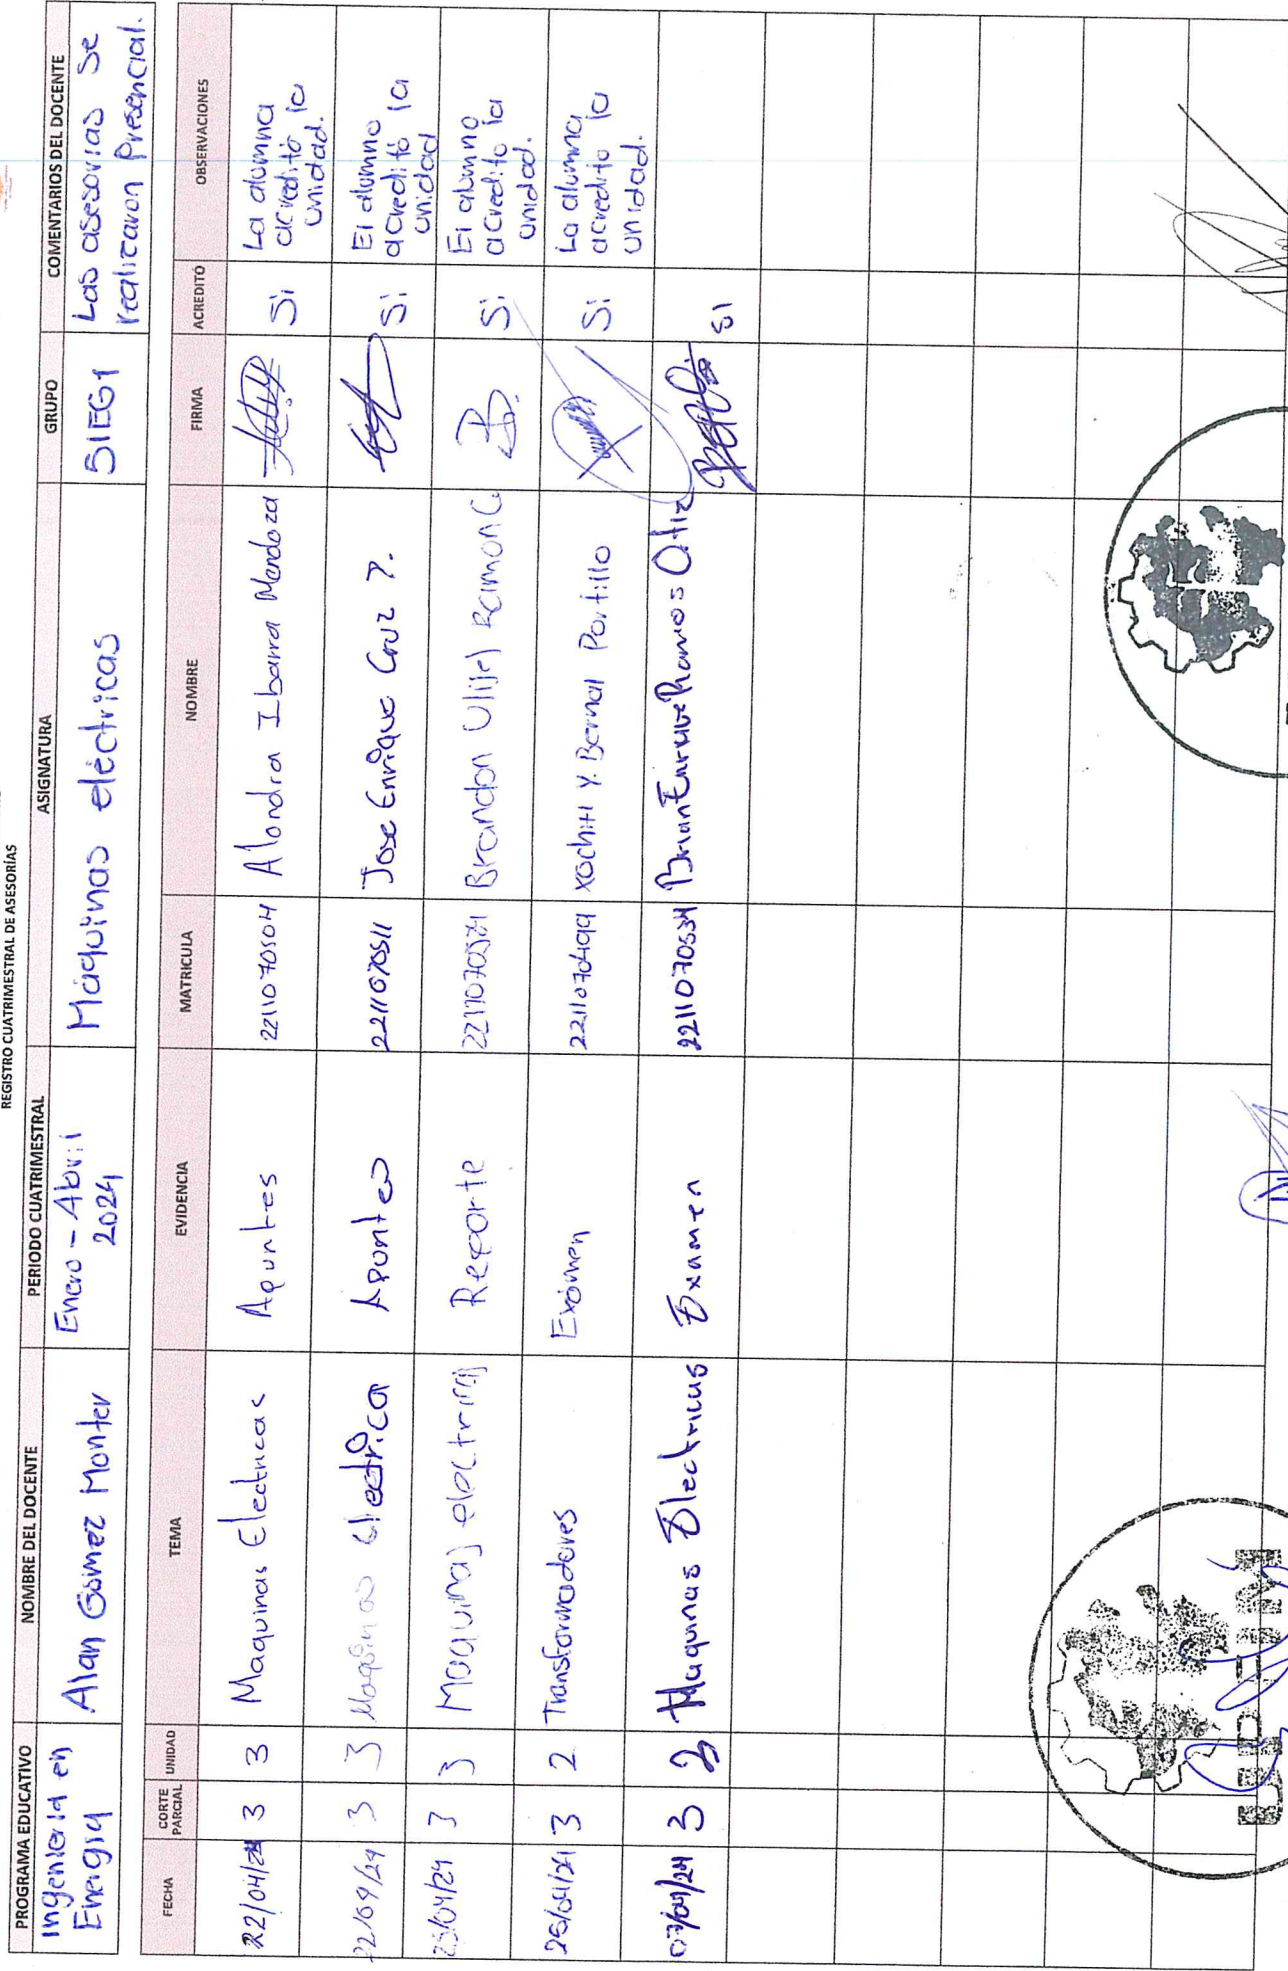 REGISTRO CUATRIMESTRAL DE ASESORÍAS
PROGRAMA EDUCATIVO NOMBRE DEL DOCENTE PERIODO CUATRIMESTRAL ASIGNATURA GRUPO COMENTARIOS DEL DOCENTE
Ingenieria en Energia Alan Gómez Monter Enero - Abril 2024 Máquinas eléctricas 5IEG1 Las asesorias se realizaron Presencial.
FECHA CORTE PARCIAL UNIDAD TEMA EVIDENCIA MATRICULA NOMBRE FIRMA ACREDITÓ OBSERVACIONES
22/04/24 3 3 Maquinas Electricas Apuntes 2211070504 Alondra Ibarra Mendoza Si La alumna acreditó la unidad.
22/04/24 3 3 Maquinas Electrica Apuntes Jose Enrique Cruz P. Si El alumno acreditó la unidad
3 3 Maquinas electricas Reporte Brandon Si El alumno acredito la unidad.
25/04/24 3 2 Transformadores Exámen 2211070499 Xochitl Y. Bernal Portillo Si La alumna acredito la unidad.
3 2 Maquinas Electricas Examen 2211070534 Brian Enrique Ramos Ortiz SI